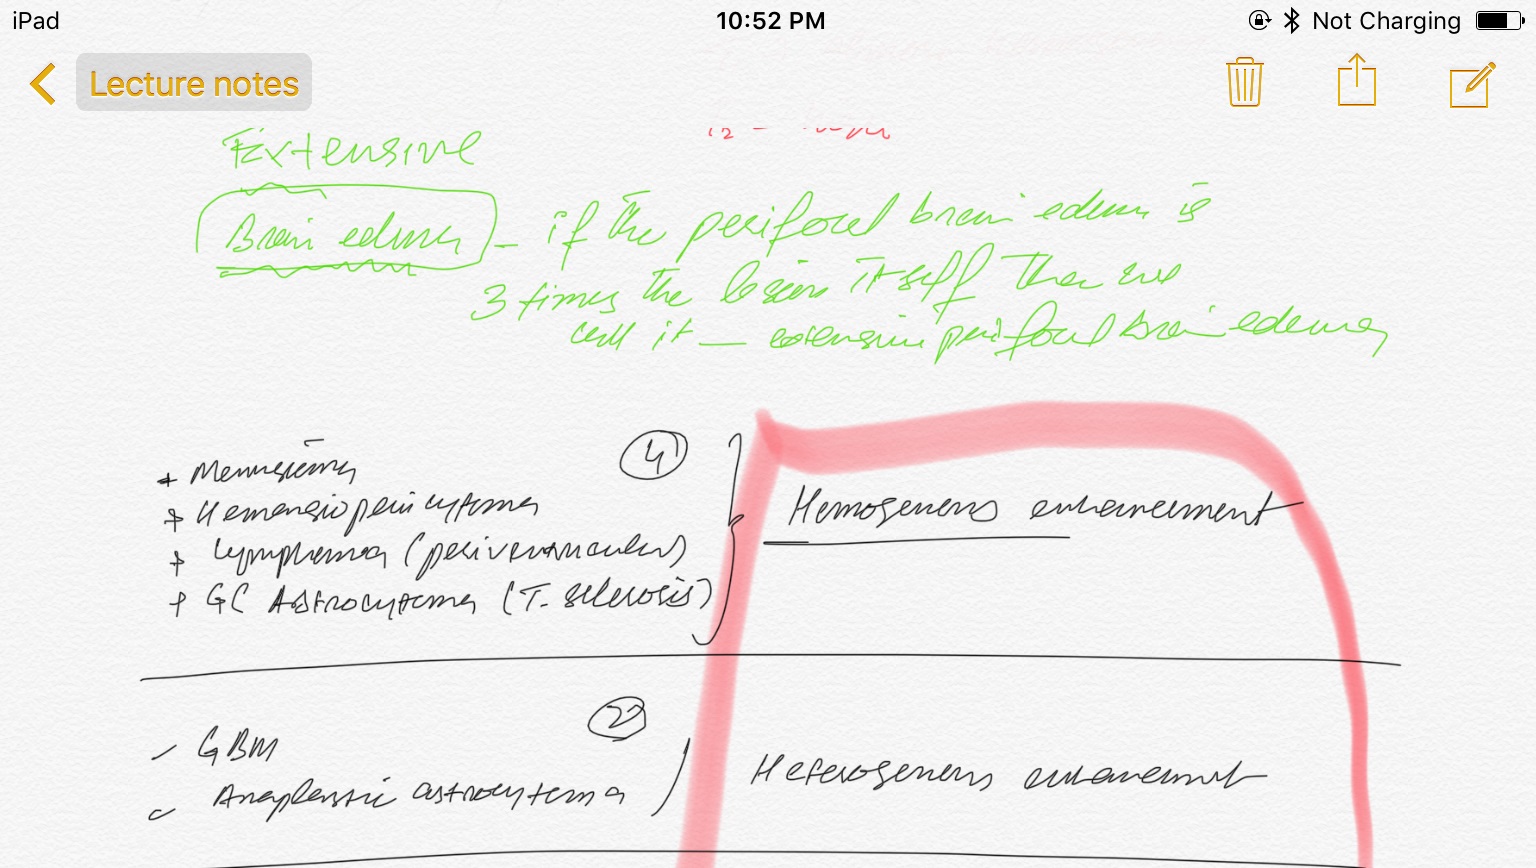 iPad 10:52 PM Not Charging
Lecture notes
Extensive
Brain edema - if the perifocal brain edema is
3 times the lesion itself then we
call it — extensive perifocal brain edema
+ Meningioma 4
+ Hemangiopericytoma
+ Lymphoma (periventricular)
+ GC Astrocytoma (T. sclerosis)
Homogenous enhancement
GBM 2
Anaplastic astrocytoma
Heterogenous enhancement